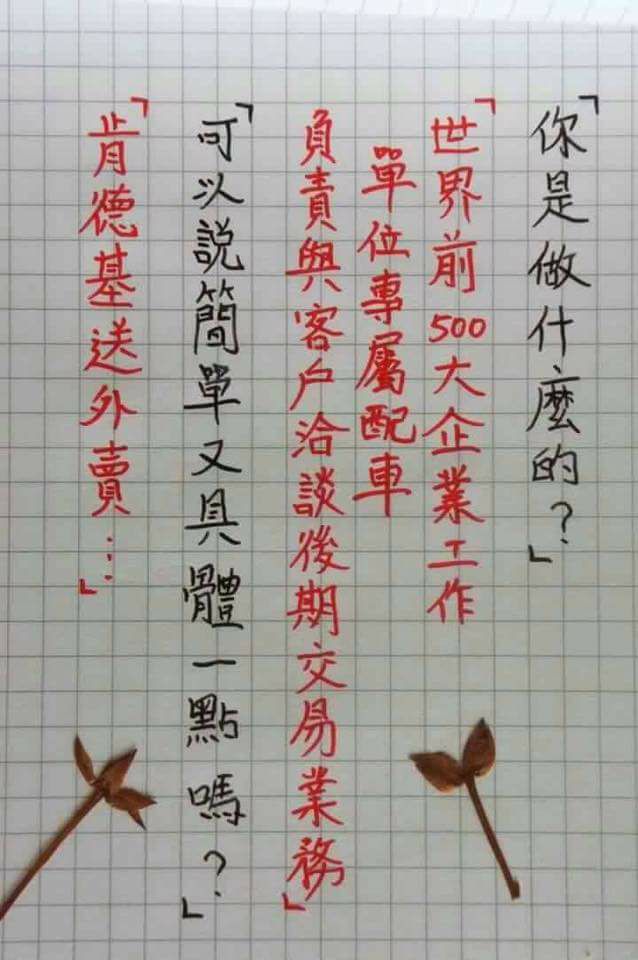 「你是做什麼的？」
「世界前500大企業工作
單位專屬配車
負責與客戶洽談後期交易業務」
「可以説簡單又具體一點嗎？」
「肯德基送外賣…」